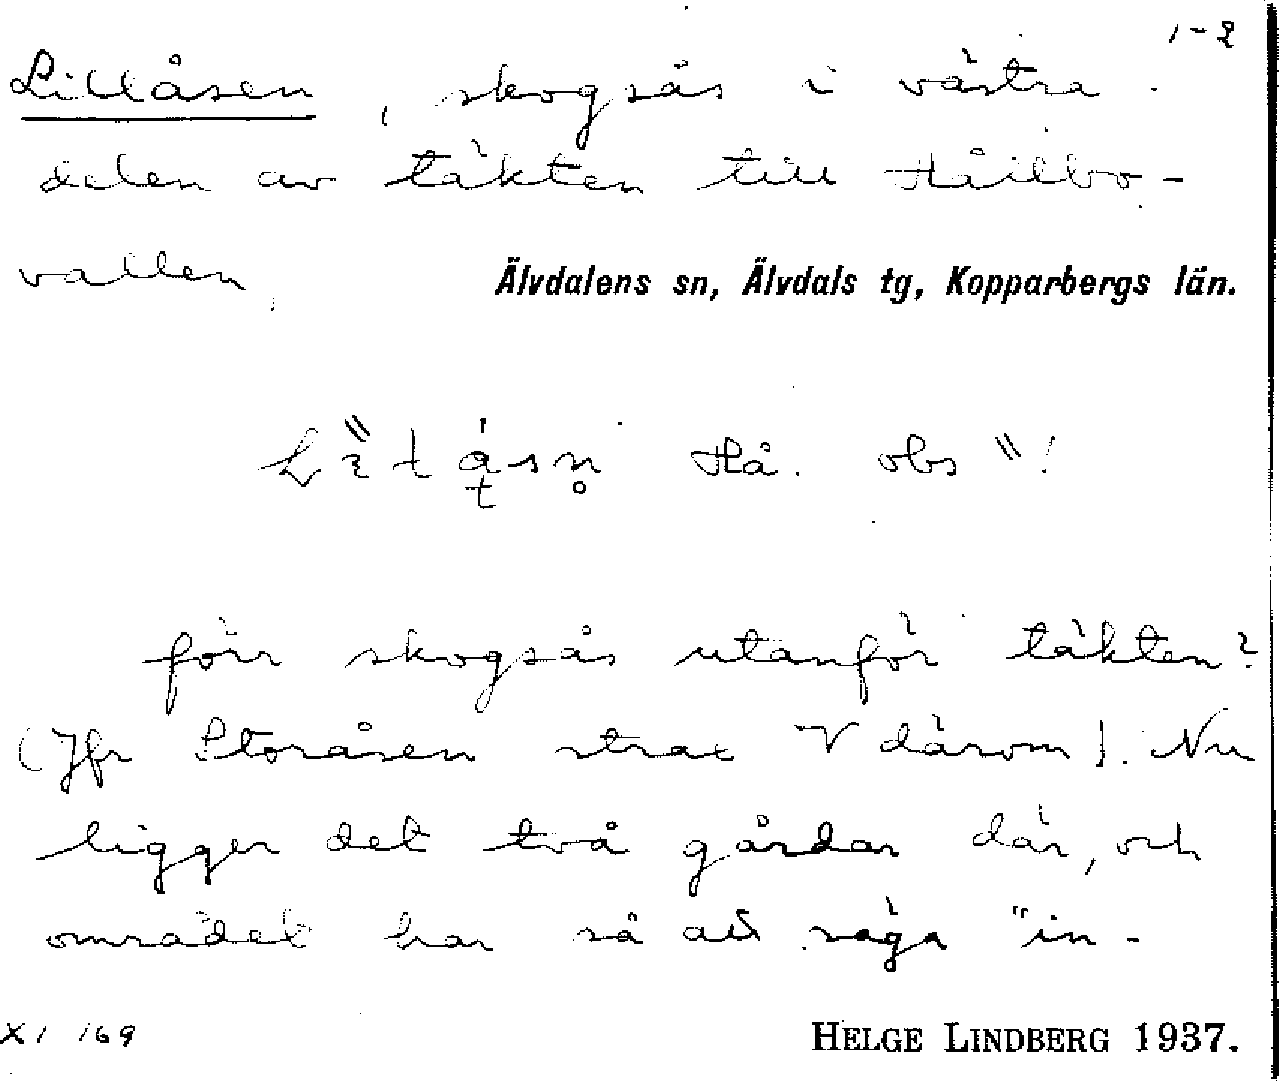 1-2
Lillåsen, skogsås i västra
delen av täkten till Håillbo-
vallen.
Älvdalens sn, Älvdals tg, Kopparbergs län.
Hå. obs "!
förr skogsås utanför täkten?
(Jfr Storåsen strax V därom). Nu
ligger det två gårdar där, och
området har så att säga "in-
XI 169
HELGE LINDBERG 1937.